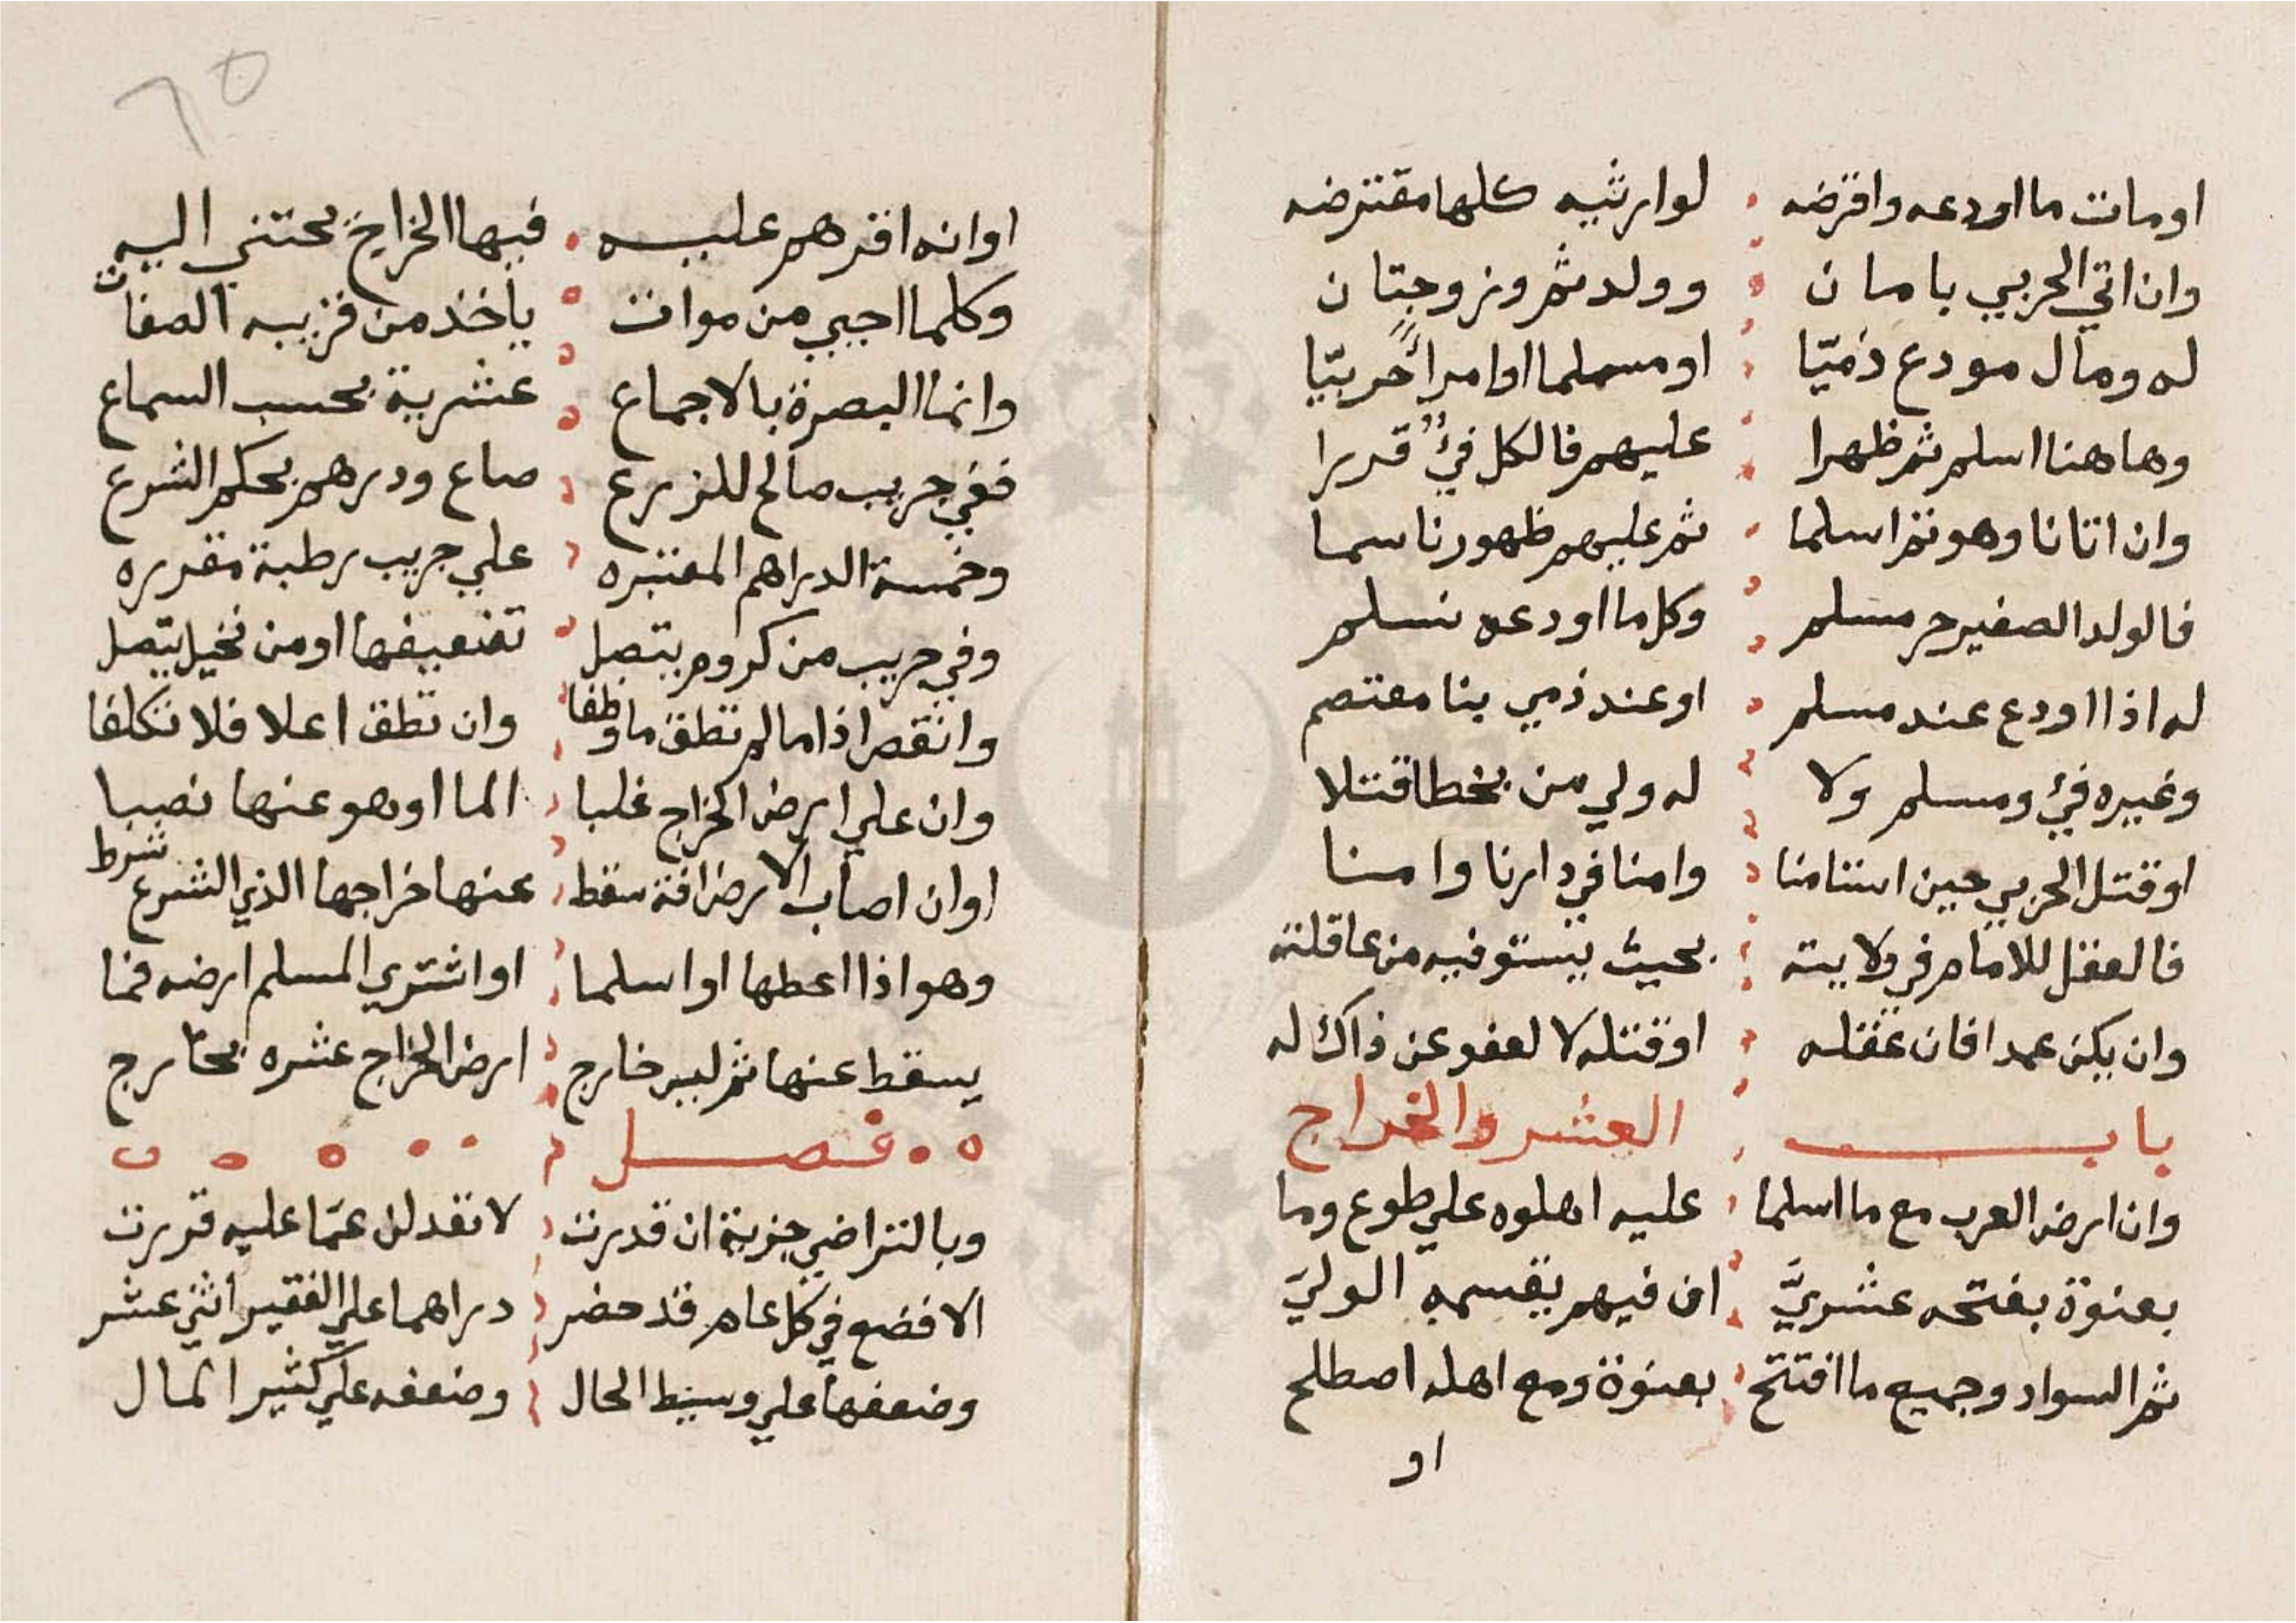 او مات ما اودعه واقرضه لوارثيه كلها مقترضه
وان اتي الحربي بامان وولد ثم وزوجتان
له ومال مودع ذميّا او مسلما او امرأً حربيّا
وهاهنا اسلم ثم ظهرا عليهم فالكل فيٌ قدرا
وان اتانا وهو ثم اسلما ثم عليهم ظهورنا سما
فالولد الصغير حر مسلم وكل ما اودعه نسلم
له اذا اودع عند مسلم او عند ذمي بنا معتصم
وغيره فيٌ ومسلم ولا له ولي من بخطا قتلا
او قتل الحربي حين استامنا وامنا في دارنا وامنا
فالعقل للامام في ولايته بحيث يستوفيه من عاقلته
وان يكن عمدا فان عقله او قتله لا لعفو عن ذاك له
باب العشر والخراج
وان ارض العرب مع ما اسلما عليه اهلوه علي طوع وما
بعنوة بفتحه عشريَّ ان فيهم يقسمه الوليَ
ثم السواد وجميع ما افتتح بعنوة ومع اهله اصطلح
او
٦٥
او انه اقرهم عليه فيها الخراج يجتني اليه
وكلما احيي من موات ياخذ من قريبه الصفات
وانما البصرة بالاجماع عشرية بحسب السماع
ففي جريب صالح للزرع صاع ودرهم بحكم الشرع
وخمسة الدراهم المعتبره علي جريب رطبة مقرره
وفي جريب من كروم يتصل تضعيفها او من نخيل يتصل
وانقص اذا ما لم تطق ما وظفا وان تطق اعلا فلا تكلفا
وان علي ارض الخراج غلبا الما او هو عنها نصبا
او ان اصاب الارض افة سقط عنها خراجها الذي الشرع شرط
وهو اذا اعطها او اسلما او اشتري المسلم ارضه فما
يسقط عنها ثم ليس خارج ارض الخراج عشره بخارج
فصل
وبالتراضي جزية ان قدرت لا تعدلن عمّا عليه قررت
الا فضع في كل عام قد حضر دراهما علي الفقير اثني عشر
وضعفها علي وسيط الحال وضعفه علي كثير المال